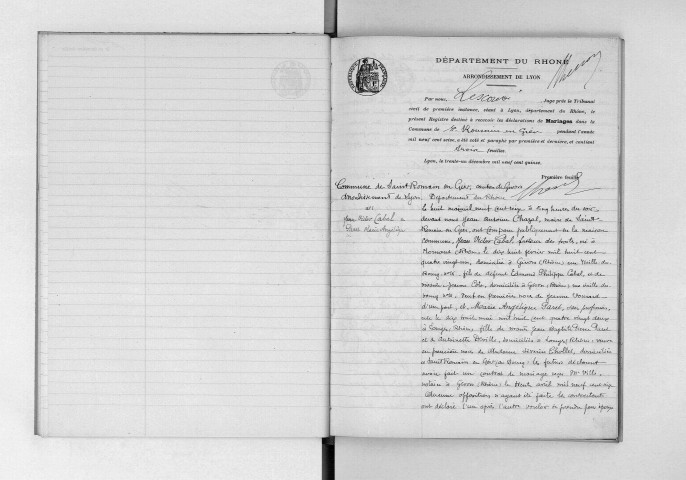 DÉPARTEMENT DU RHONE
ARRONDISSEMENT DE LYON
Par nous, Juge près le Tribunal
civil de première instance, séant à Lyon, département du Rhône, le
présent Registre destiné à recevoir les déclarations de Mariages dans la
Commune de St Romain en Gier pendant l'année
mil neuf cent seize, a été coté et paraphé par première et dernière, et contient
trois feuilles.
Lyon, le trente-un décembre mil neuf cent quinze.
Première feuille
Commune de Saint Romain en Gier, canton de Givors
Arrondissement de Lyon, Département du Rhône
No 1
Jean Victor Cabal &
Marie Angélique
le huit mai mil neuf cent seize, à cinq heures du soir
devant nous Jean Antoine Chazal, maire de Saint
Romain en Gier, ont comparu publiquement en la maison
commune, Jean Victor Cabal, facteur des postes, né à
Mornant, Rhône, le dix huit février mil huit cent
quatre vingt un, domicilié à Givors (Rhône) rue Vieille du
Bourg fils de défunt Edmond Philippe Cabal, et de
domiciliée à Givors (Rhône) rue vieille du
bourg veuf en première noce de Jeanne
d'une part, et Marie Angélique sans profession,
née le dix huit mai mil huit cent quatre vingt deux
à Longes, Rhône, fille de Jean Baptiste
et d'Antoinette domiciliés à Longes, Rhône, veuve
en première noce de domiciliée
à Saint Romain en Gier les futurs déclarant
avoir fait un contrat de mariage chez Me Ville,
notaire à Givors (Rhône) le trente avril mil neuf cent seize
Aucune opposition n'ayant été faite les contractants
ont déclaré l'un après l'autre vouloir se prendre pour époux